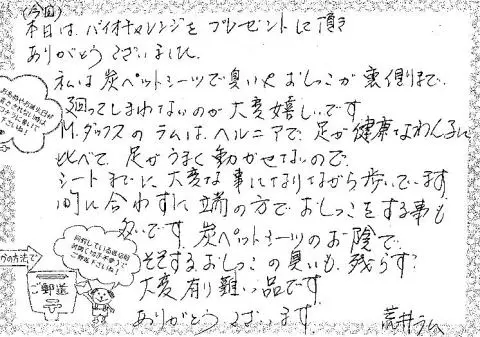 (今回)
本日は、バイオチャレンジをプレゼントに頂き
ありがとうございました。
私は炭ペットシーツで臭いやおしっこが裏側まで、
廻ってしまわないのが大変嬉しいです
M.ダックスのラムは、ヘルニアで、足が健康なわんこに
比べて、足がうまく動かせないので、
シートまでに大変な事になりながら歩いています
間に合わずに端の方でおしっこをする事も
多いです。炭ペットシーツのお陰で、
そそするおしっこの臭いも、残らず?
大変有り難い品です
ありがとうございます。
荒井ラム
の方法で
ご郵送